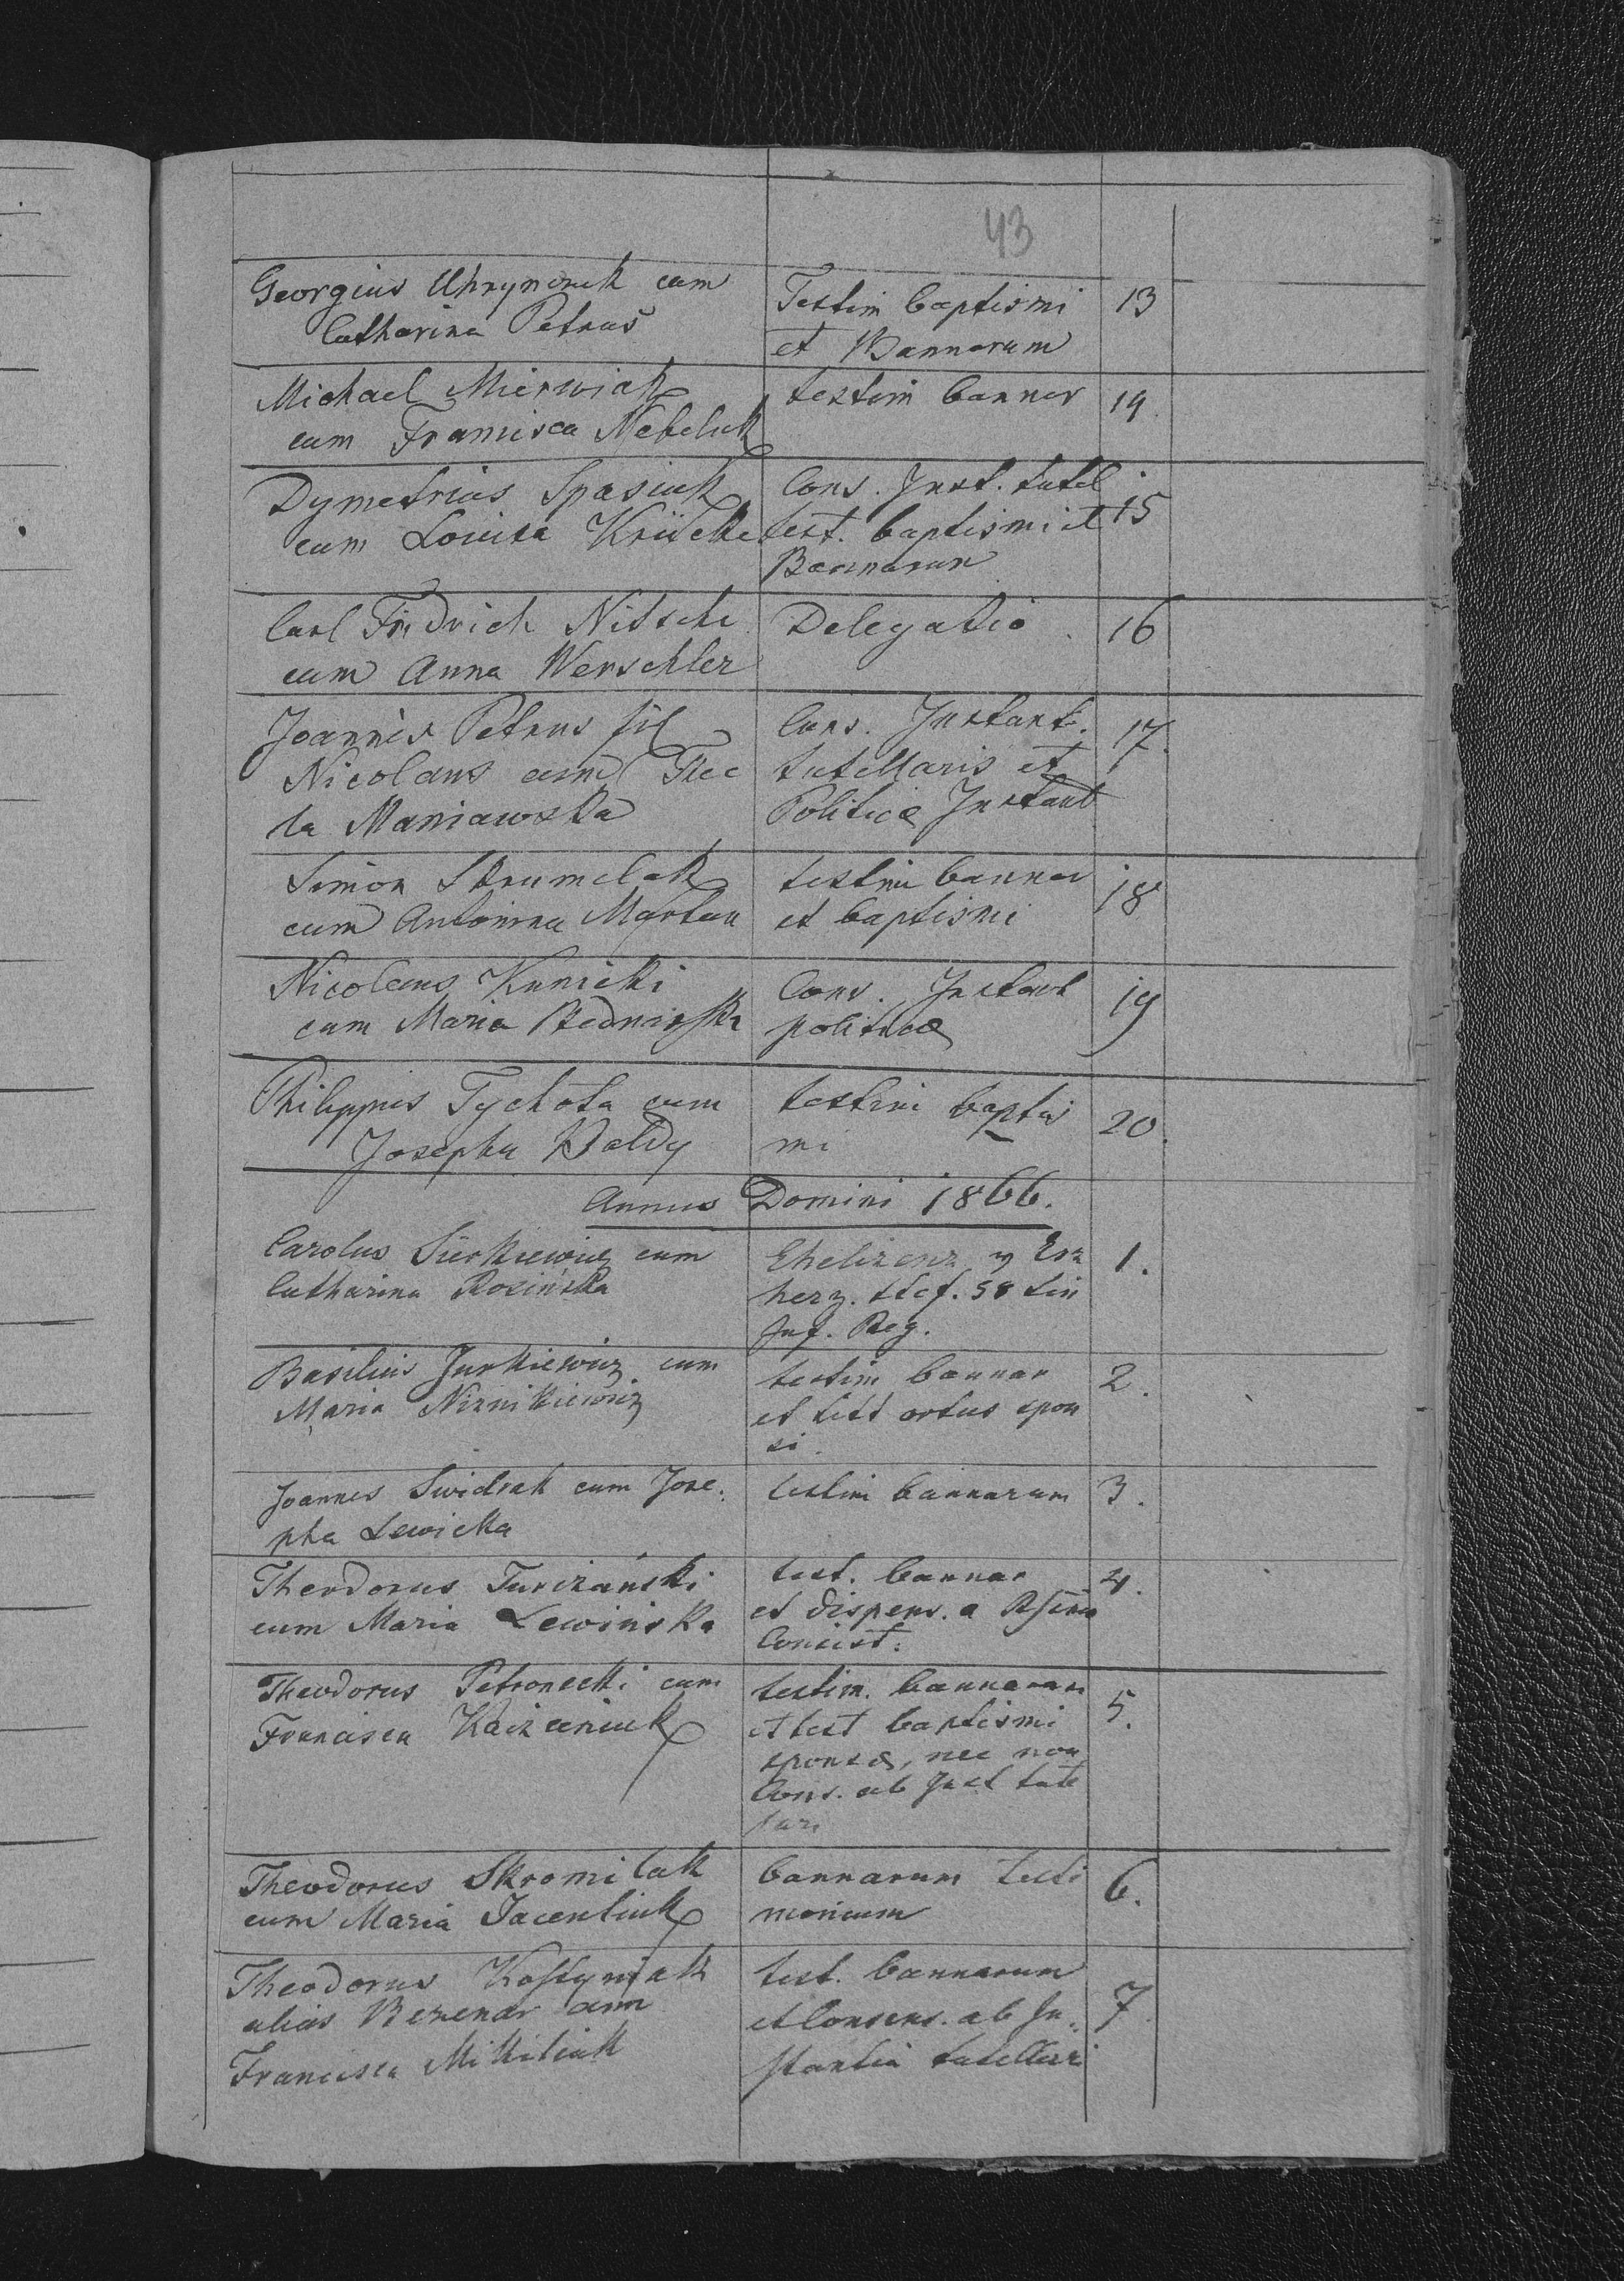 43
Georgius Uhrynczuk cum
Catharina Petrus
Testim baptismi
et Bannorum
13
Michael Mierwiak
cum Francisca Nebeluk
testim bannor
14.
Dymetrius Spasiuk
cum Louisa Krücke
Cons. Inst. tutel
test. baptismi et
Bannarum
15
Carl Fridrich Nitsche
cum Anna Werschler
Delegatio.
16
Joannes Petrus fil
Nicolaus cum Thec
la Maniawska
Cons. Instant.
tutellaris et
Politicæ Instant
17.
Simon Skrumelak
cum Antonina Martan
testim bannar
et baptismi
18
Nicolaus Kunicki
cum Maria Bednarska
Cons. Instant
politicæ
19
Philippus Tychota cum
Josepha Baldy
testim baptis
mi
20.
Annus Domini 1866.
Carolus Sierkiewicz cum
Catharina Rosińska
Ehelizenz v Erz
herz. Stef. 58 Lin
Inf. Reg.
1.
Basilius Jurkiewicz cum
Maria Niznikiewicz
testim bannar
et test ortus spon
si.
2.
Joannes Swidrak cum Jose:
pha Lewicka
testim bannarum
3.
Theodorus Turizański
cum Maria Lewińska
test. bannar
et dispens. a
Consist:
4.
Theodorus Petronecki cum
Francisca Kaizeniuk
testim. bannarum
et test baptismi
sponsæ, nec non
Cons. ab Inst tute
lari
5.
Theodorus Skromilak
cum Maria Jacentiuk
bannarum testi
monium
6.
Theodorus Kostyniak
alias Bezenar cum
Francisca Mikitiak
test. bannarum
et Consens. ab In:
stantia tutellari
7.